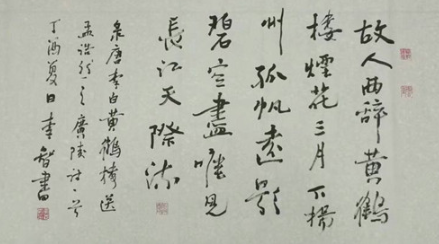 故人西辞黄鹤
楼烟花三月下扬
州孤帆远影
碧空尽唯见
长江天际流
录唐李白黄鹤楼送
孟浩然之广陵诗一首
丁酉夏日李智书